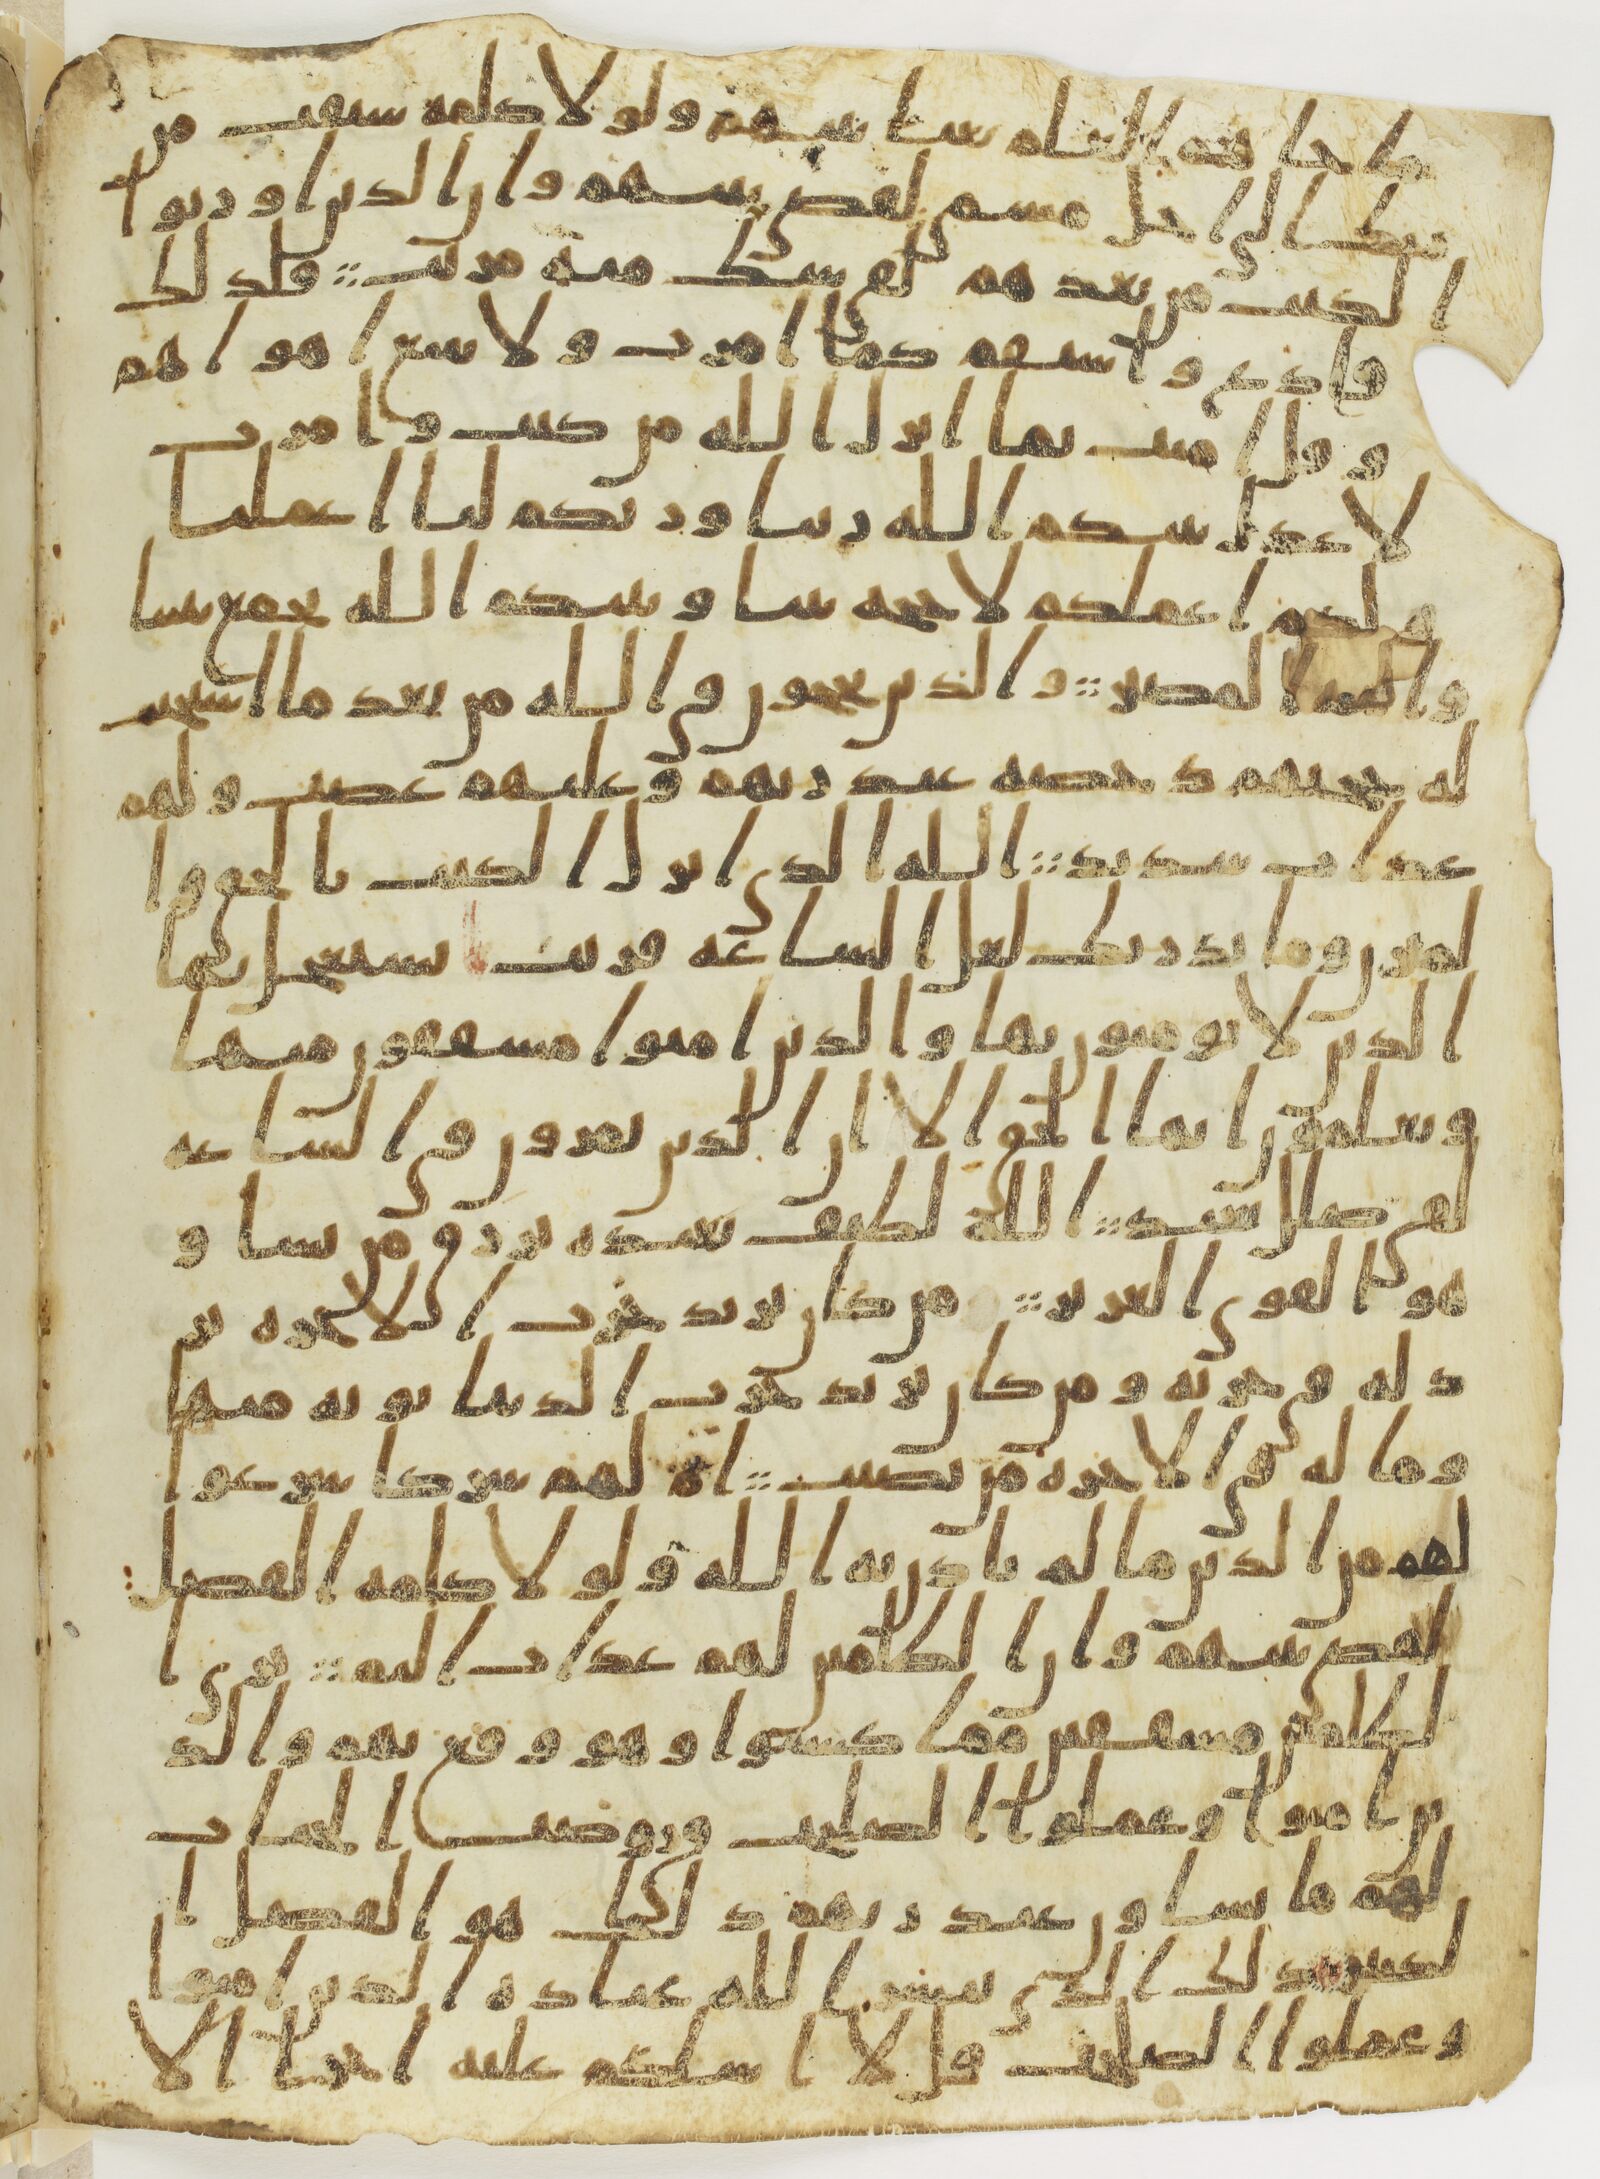 ما جاهم العلم بغيا بينهم ولولا كلمة سبقت من
ربك الى اجل مسمى لقضي بينهم وان الذين اورثوا
الكتب من بعدهم لفي شك منه مريب فلذلك
فادع واستقم كما امرت ولا تتبع اهواهم
وقل امنت بما انزل الله من كتب وامرت
لاعدل بينكم الله ربنا وربكم لنا اعملنا
ولكم اعملكم لا حجة بيننا وبينكم الله يجمع بيننا
واليه المصير والذين يحجون في الله من بعد ما استجيب
له حجتهم دحضة عند ربهم وعليهم غضب ولهم
عذاب شديد الله الذي انزل الكتب بالحق وا
لميزن وما يدريك لعل الساعة قريب يستعجل بها
الذين لا يومنون بها والذين امنوا مشفقون منها
ويعلمون انها الحق الا ان الذين يمرون في الساعة
لفي ضلل بعيد الله لطيف بعبده يرزق من يشا و
هو القوي العزيز من كان يريد حرث الاخرة نز
د له في حرثه ومن كان يريد حرث الدنيا نوته منها
وما له في الاخرة من نصيب ام لهم شركا شرعوا
لهم من الدين ما لم ياذن به الله ولولا كلمة الفصل
لقضي بينهم وان الظلمين لهم عذاب اليم ترى ا
لظلمين مشفقين مما كسبوا وهو وقع بهم والذ
ين امنوا وعملوا الصلحت في روضت الجنات
لهم ما يشاون عند ربهم ذلك هو الفضل ا
لكبير ذلك الذي يبشر الله عباده الذين امنوا
وعملوا الصلحت قل لا اسلكم عليه اجرا الا